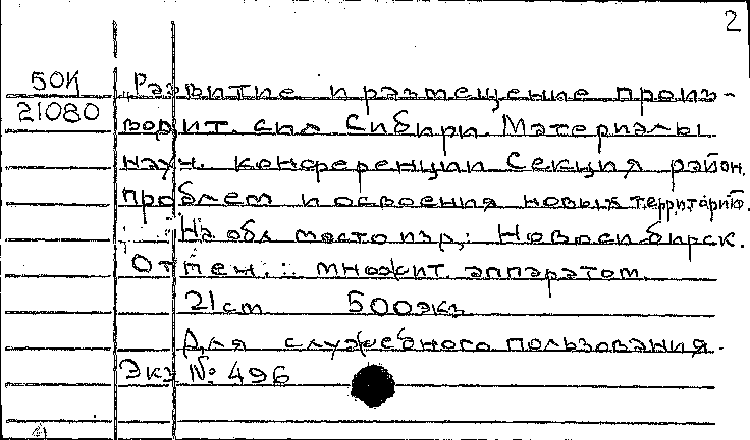 2
50К
21080
„Развитие и размещение произ-
водит. сил Сибири. Материалы
науч. конференции Секция район.
проблем и освоения новых территорий.
На обл место изд.: Новосибирск.
Отпеч.: множит. аппаратом.
21 cm 500экз
Для служебного пользования.
Экз № 496